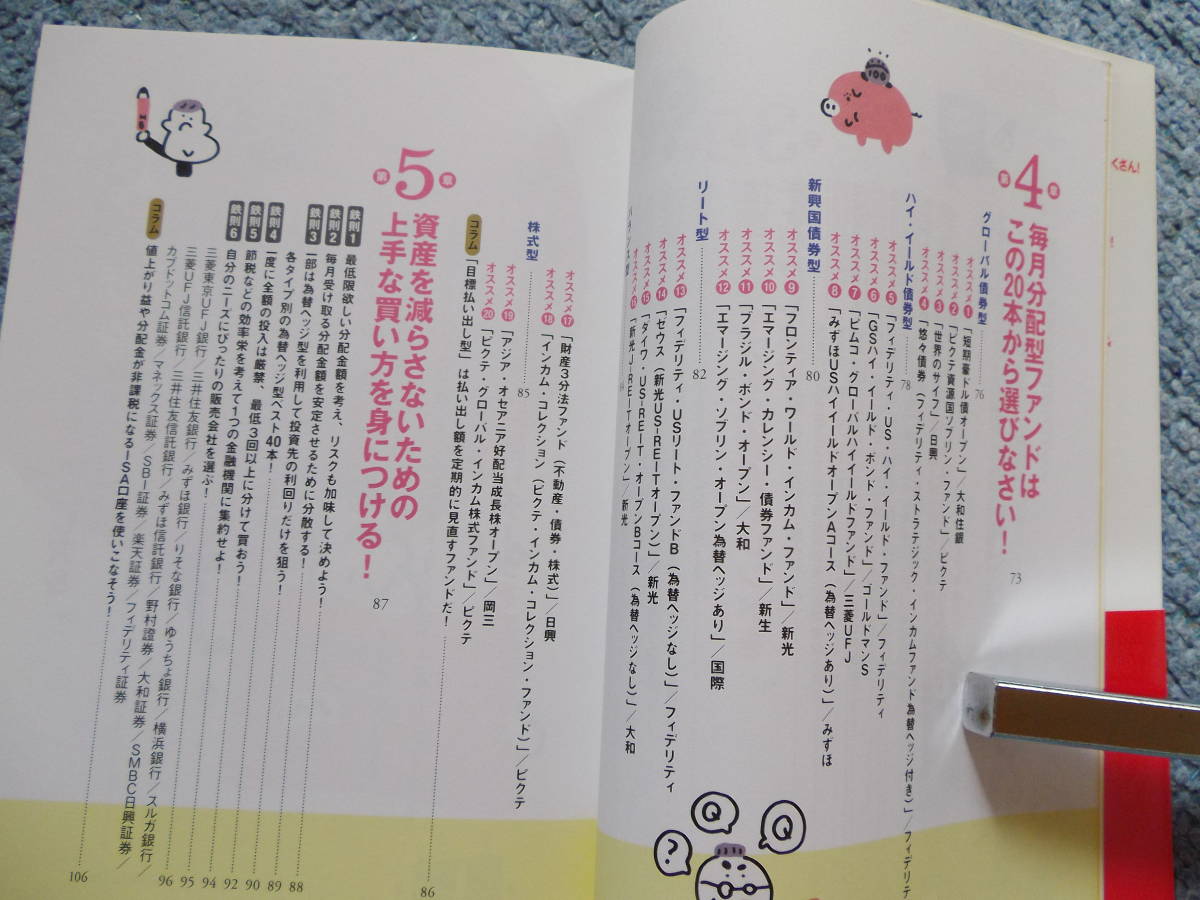 くさん!
第4章
毎月分配型ファンドは
この20本から選びなさい!
73
グローバル債券型
76
オススメ1 「短期豪ドル債オープン」/大和住銀
オススメ2 「ピクテ資源国ソブリン・ファンド」/ピクテ
オススメ3 「世界のサイフ」/日興
オススメ4 「悠々債券(フィデリティ・ストラテジック・インカムファンド為替ヘッジ付き)」/フィデリテ
ハイ・イールド債券型
78
オススメ5 「フィデリティ・US・ハイ・イールド・ファンド」/フィデリティ
オススメ6 「GSハイ・イールド・ボンド・ファンド」/ゴールドマンS
オススメ7 「ピムコ・グローバルハイイールドファンド」/三菱UFJ
オススメ8 「みずほUSハイイールドオープンAコース(為替ヘッジあり)」/みずほ
新興国債券型
80
オススメ9 「フロンティア・ワールド・インカム・ファンド」/新光
オススメ10 「エマージング・カレンシー・債券ファンド」/新生
オススメ11 「ブラジル・ボンド・オープン」/大和
オススメ12 「エマージング・ソブリン・オープン為替ヘッジあり」/国際
リート型
82
オススメ13 「フィデリティ・USリート・ファンドB(為替ヘッジなし)」/フィデリティ
オススメ14 「ゼウス(新光US-REITオープン)」/新光
オススメ15 「ダイワ・US-REIT・オープンBコース(為替ヘッジなし)」/大和
オススメ16 「新光J-REITオープン」/新光
バランス型
オススメ17 「財産3分法ファンド(不動産・債券・株式)」/日興
オススメ18 「インカム・コレクション(ピクテ・インカム・コレクション・ファンド)」/ピクテ
株式型
85
オススメ19 「アジア・オセアニア好配当成長株オープン」/岡三
オススメ20 「ピクテ・グローバル・インカム株式ファンド」/ピクテ
コラム 「目標払い出し型」は払い出し額を定期的に見直すファンドだ!
86
第5章
資産を減らさないための
上手な買い方を身につける!
87
鉄則1 最低限欲しい分配金額を考え、リスクも加味して決めよう!
88
鉄則2 毎月受け取る分配金額を安定させるために分散する!
89
鉄則3 一部は為替ヘッジ型を利用して投資先の利回りだけを狙う!
90
各タイプ別の為替ヘッジ型ベスト40本!
92
鉄則4 一度に全額の投入は厳禁、最低3回以上に分けて買おう!
94
鉄則5 節税などの効率栄を考えて1つの金融機関に集約せよ!
95
鉄則6 自分のニーズにぴったりの販売会社を選ぶ!
96
三菱東京UFJ銀行/三井住友銀行/みずほ銀行/りそな銀行/ゆうちょ銀行/横浜銀行/スルガ銀行/
三菱UFJ信託銀行/三井住友信託銀行/みずほ信託銀行/野村證券/大和証券/SMBC日興証券/
カブドットコム証券/マネックス証券/SBI証券/楽天証券/フィデリティ証券
コラム 値上がり益や分配金が非課税になるISA口座を使いこなそう!
106
100
Q
Q
?